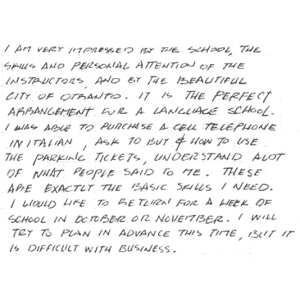 I AM VERY IMPRESSED BY THE SCHOOL, THE
SKILLS AND PERSONAL ATTENTION OF THE
INSTRUCTORS, AND BY THE BEAUTIFUL
CITY OF OTRANTO. IT IS THE PERFECT
ARRANGEMENT FOR A LANGUAGE SCHOOL.
I WAS ABLE TO PURCHASE A CELL TELEPHONE
IN ITALIAN, ASK TO BUY & HOW TO USE
THE PARKING TICKETS, UNDERSTAND ALOT
OF WHAT PEOPLE SAID TO ME. THESE
ARE EXACTLY THE BASIC SKILLS I NEED.
I WOULD LIKE TO RETURN FOR A WEEK OF
SCHOOL IN OCTOBER OR NOVEMBER. I WILL
TRY TO PLAN IN ADVANCE THIS TIME, BUT IT
IS DIFFICULT WITH BUSINESS.